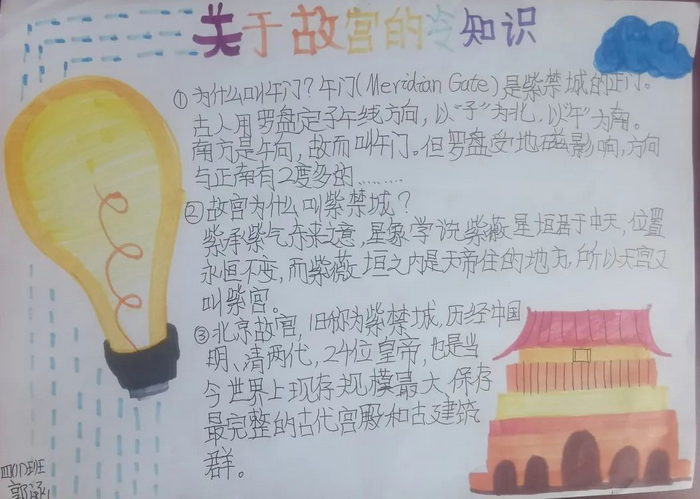 关于故宫的冷知识
①为什么叫午门？午门(Meridian Gate)是紫禁城的正门。
古人用罗盘定子午线方向，以“子”为北，以“午”为南。
南方是午向，故而叫午门。但罗盘受地磁影响，方向
与正南有2度多的………
②故宫为什么叫紫禁城？
紫承紫气东来之意，星象学说紫薇星垣居于中天，位置
永恒不变，而紫薇垣之内是天帝住的地方，所以天宫又
叫紫宫。
③北京故宫，旧称为紫禁城，历经中国
明、清两代，24位皇帝，也是当
今世界上现存规模最大、保存
最完整的古代宫殿和古建筑
群。